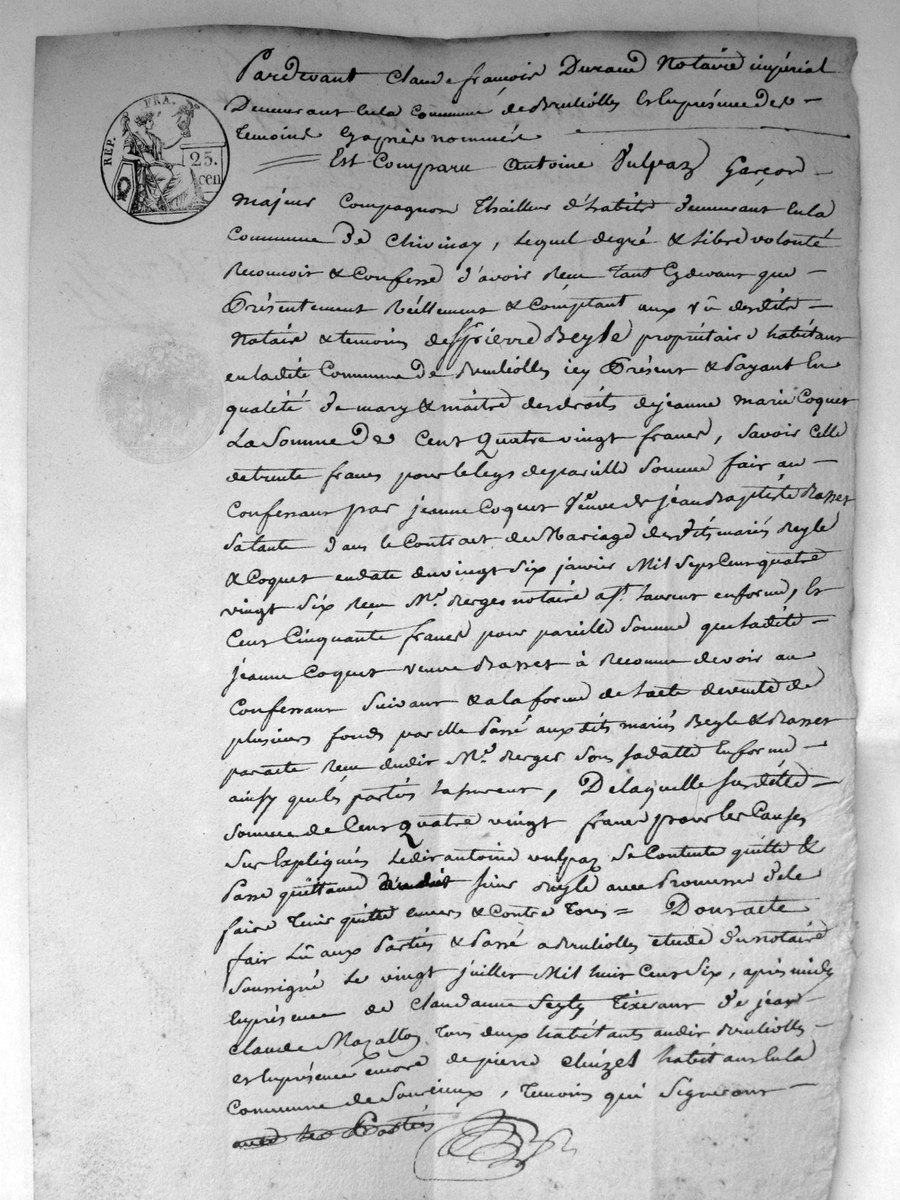 REP. FRA.
25.
cen
Pardevant Claude françois Durand Notaire impérial
Demeurant en la Commune de Brulioles Et En présence des
Temoins Eaprés nommés
Est Comparu Antoine Vulpaz Garçon
majeur Compagnon Thailleur d'habits demeurant en la
Commune De Chivinay, Lequel de gré & Libre volonté
Reconnoit & Confesse d'avoir Recu Tant Cydevant que
Présentement Réellement & Comptant aux vû desdits
Notaire & temoins de Sr. pierre Beyle propriétaire habitant
en ladite Commune De Brulioles icy Présent & Payant En
qualité De mary & maitre des droits de jeanne marie Coquet
La Somme De Cent Quatre vingt francs, Savoir Celle
de trente francs pour le legs de pareille Somme fait au
Confessant par jeanne Coquet Veuve de jean Baptiste Basset
Sa tante Dans le Contrat de Mariage desdits mariés Beyle
& Coquet en date du vingt Six janvier Mil Sept Cent quatre
vingt Six Recu Me. Berger notaire a St. Laurent en forme, Et
Cent Cinquante francs pour pareille Somme que ladite
jeanne Coquet veuve Basset à Reconnu devoir au
Confessant Suivant & a la forme de lacte de vente de
plusieurs fonds par elle Passé aux dits mariés Beyle & Basset
par acte Recu dudit Me. Berger Sous Sa datte En forme
ainsy que les parties lassurent, De laquelle Susdite
Somme de Cent Quatre vingt francs pour les Causes
Sus Expliqués Ledit antoine vulpaz Se Contente quitte &
Passe quittance audit Sieur Beyle avec Promesse De le
faire Tenir quitte envers & Contre Tous = Dont acte
fait Lû aux Parties & Passé a Brulioles etude du notaire
Soussigné Le vingt juillet Mil huit Cent Six, après midy
En présence de Claudanne Tixerant De jean
Claude Mazallon Tous deux habitants audit Brulioles
et En présence encore de pierre Chuzel habitant En la
Commune de Sourcieux, Temoins qui Signeront
avec les Parties